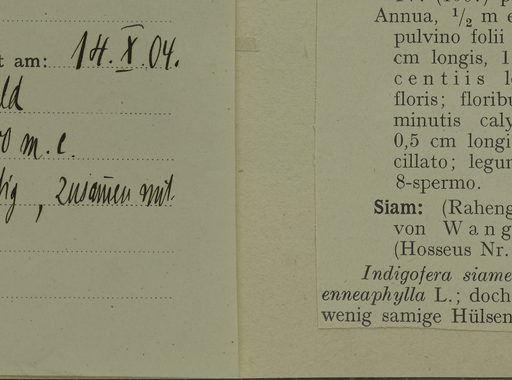 t am: 14. X. 04.
ld
0 m. c.
tig, zusamen mit
Annua, 1/2 m e
pulvino folii
cm longis, 1
centiis l
floris; floribu
minutis caly
0,5 cm longi
cillato; legu
8-spermo.
Siam: (Raheng
von Wang
(Hosseus Nr.
Indigofera siame
enneaphylla L.; doch
wenig samige Hülsen